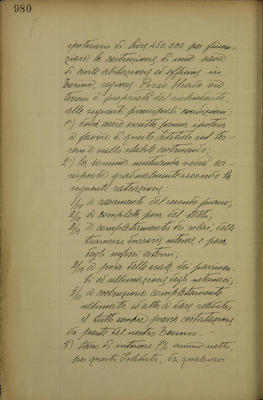 980
ipotecario di Lire 450.000 per finan-
ziare la costruzione di una casa
di civile abitazione ed officina in
Torino, regione Pozzo Strada su
terreno di proprietà del richiedente,
alle seguenti principali condizioni:
1°) dovrà essere iscritta prima ipoteca
a favore di questo Istituto sul ter-
reno e sullo stabile costruendo;
2°) la somma mutuanda verrà cor-
risposta gradualmente secondo la
seguente rateazione:
1/10 a del secondo piano;
2/10 a completa posa del tetto;
2/10 a completamento dei solai, delle
tramezze divisorie interne e posa
degli infissi esterni;
2/10 a posa delle scale, dei pavimen-
ti ed ultimazione degli intonaci;
3/10 a costruzione completamente
ultimata ed atta a essere abitata,
il tutto sempre previa constatazione
da parte del nostro Tecnico. -
3°) tasso di interesse 7% annuo netto
per questo Istituto, da qualsiasi